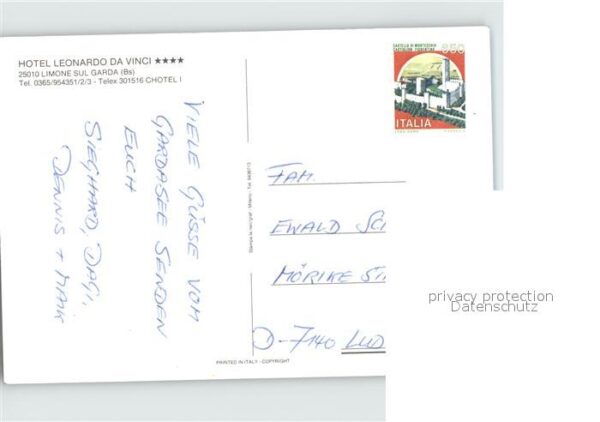 HOTEL LEONARDO DA VINCI ★★★★
25010 LIMONE SUL GARDA (Bs)
Tel. 0365/954351/2/3 - Telex 301516 CHOTEL I
VIELE GÜSSE VOM
GARDASEE SENDEN
EUCH
SIEGHARD, DAGI,
DENNIS + MAIK
CASTELLO DI MONTECCHIO
CASTIGLION FIORENTINO
650
ITALIA
FAM.
EWALD SC
MÖRIKE ST
D-7140 LUD
PRINTED IN ITALY - COPYRIGHT
privacy protection
Datenschutz